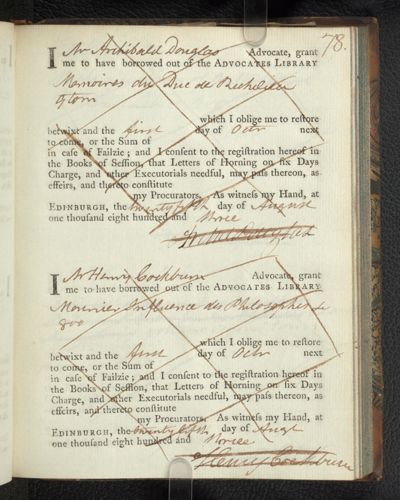 78.
I Mr Archibald Douglas Advocate, grant
me to have borrowed out of the ADVOCATES LIBRARY
Memoires du Duc de Richelieu
9 tom
which I oblige me to restore
betwixt and the first day of Octr next
to come, or the Sum of
in case of Failzie; and I consent to the registration hereof in
the Books of Session, that Letters of Horning on six Days
Charge, and other Executorials needful, may pass thereon, as
effeirs, and thereto constitute
my Procurators. As witness my Hand, at
EDINBURGH, the twenty fifth day of August
one thousand eight hundred and three
I Mr Henry Cockburn Advocate, grant
me to have borrowed out of the ADVOCATES LIBRARY
Mounier Influence des Philosophes
8vo
which I oblige me to restore
betwixt and the first day of Octr next
to come, or the Sum of
in case of Failzie; and I consent to the registration hereof in
the Books of Session, that Letters of Horning on six Days
Charge, and other Executorials needful, may pass thereon, as
effeirs, and thereto constitute
my Procurators. As witness my Hand, at
EDINBURGH, the twenty fifth day of Augt
one thousand eight hundred and three
Henry Cockburn